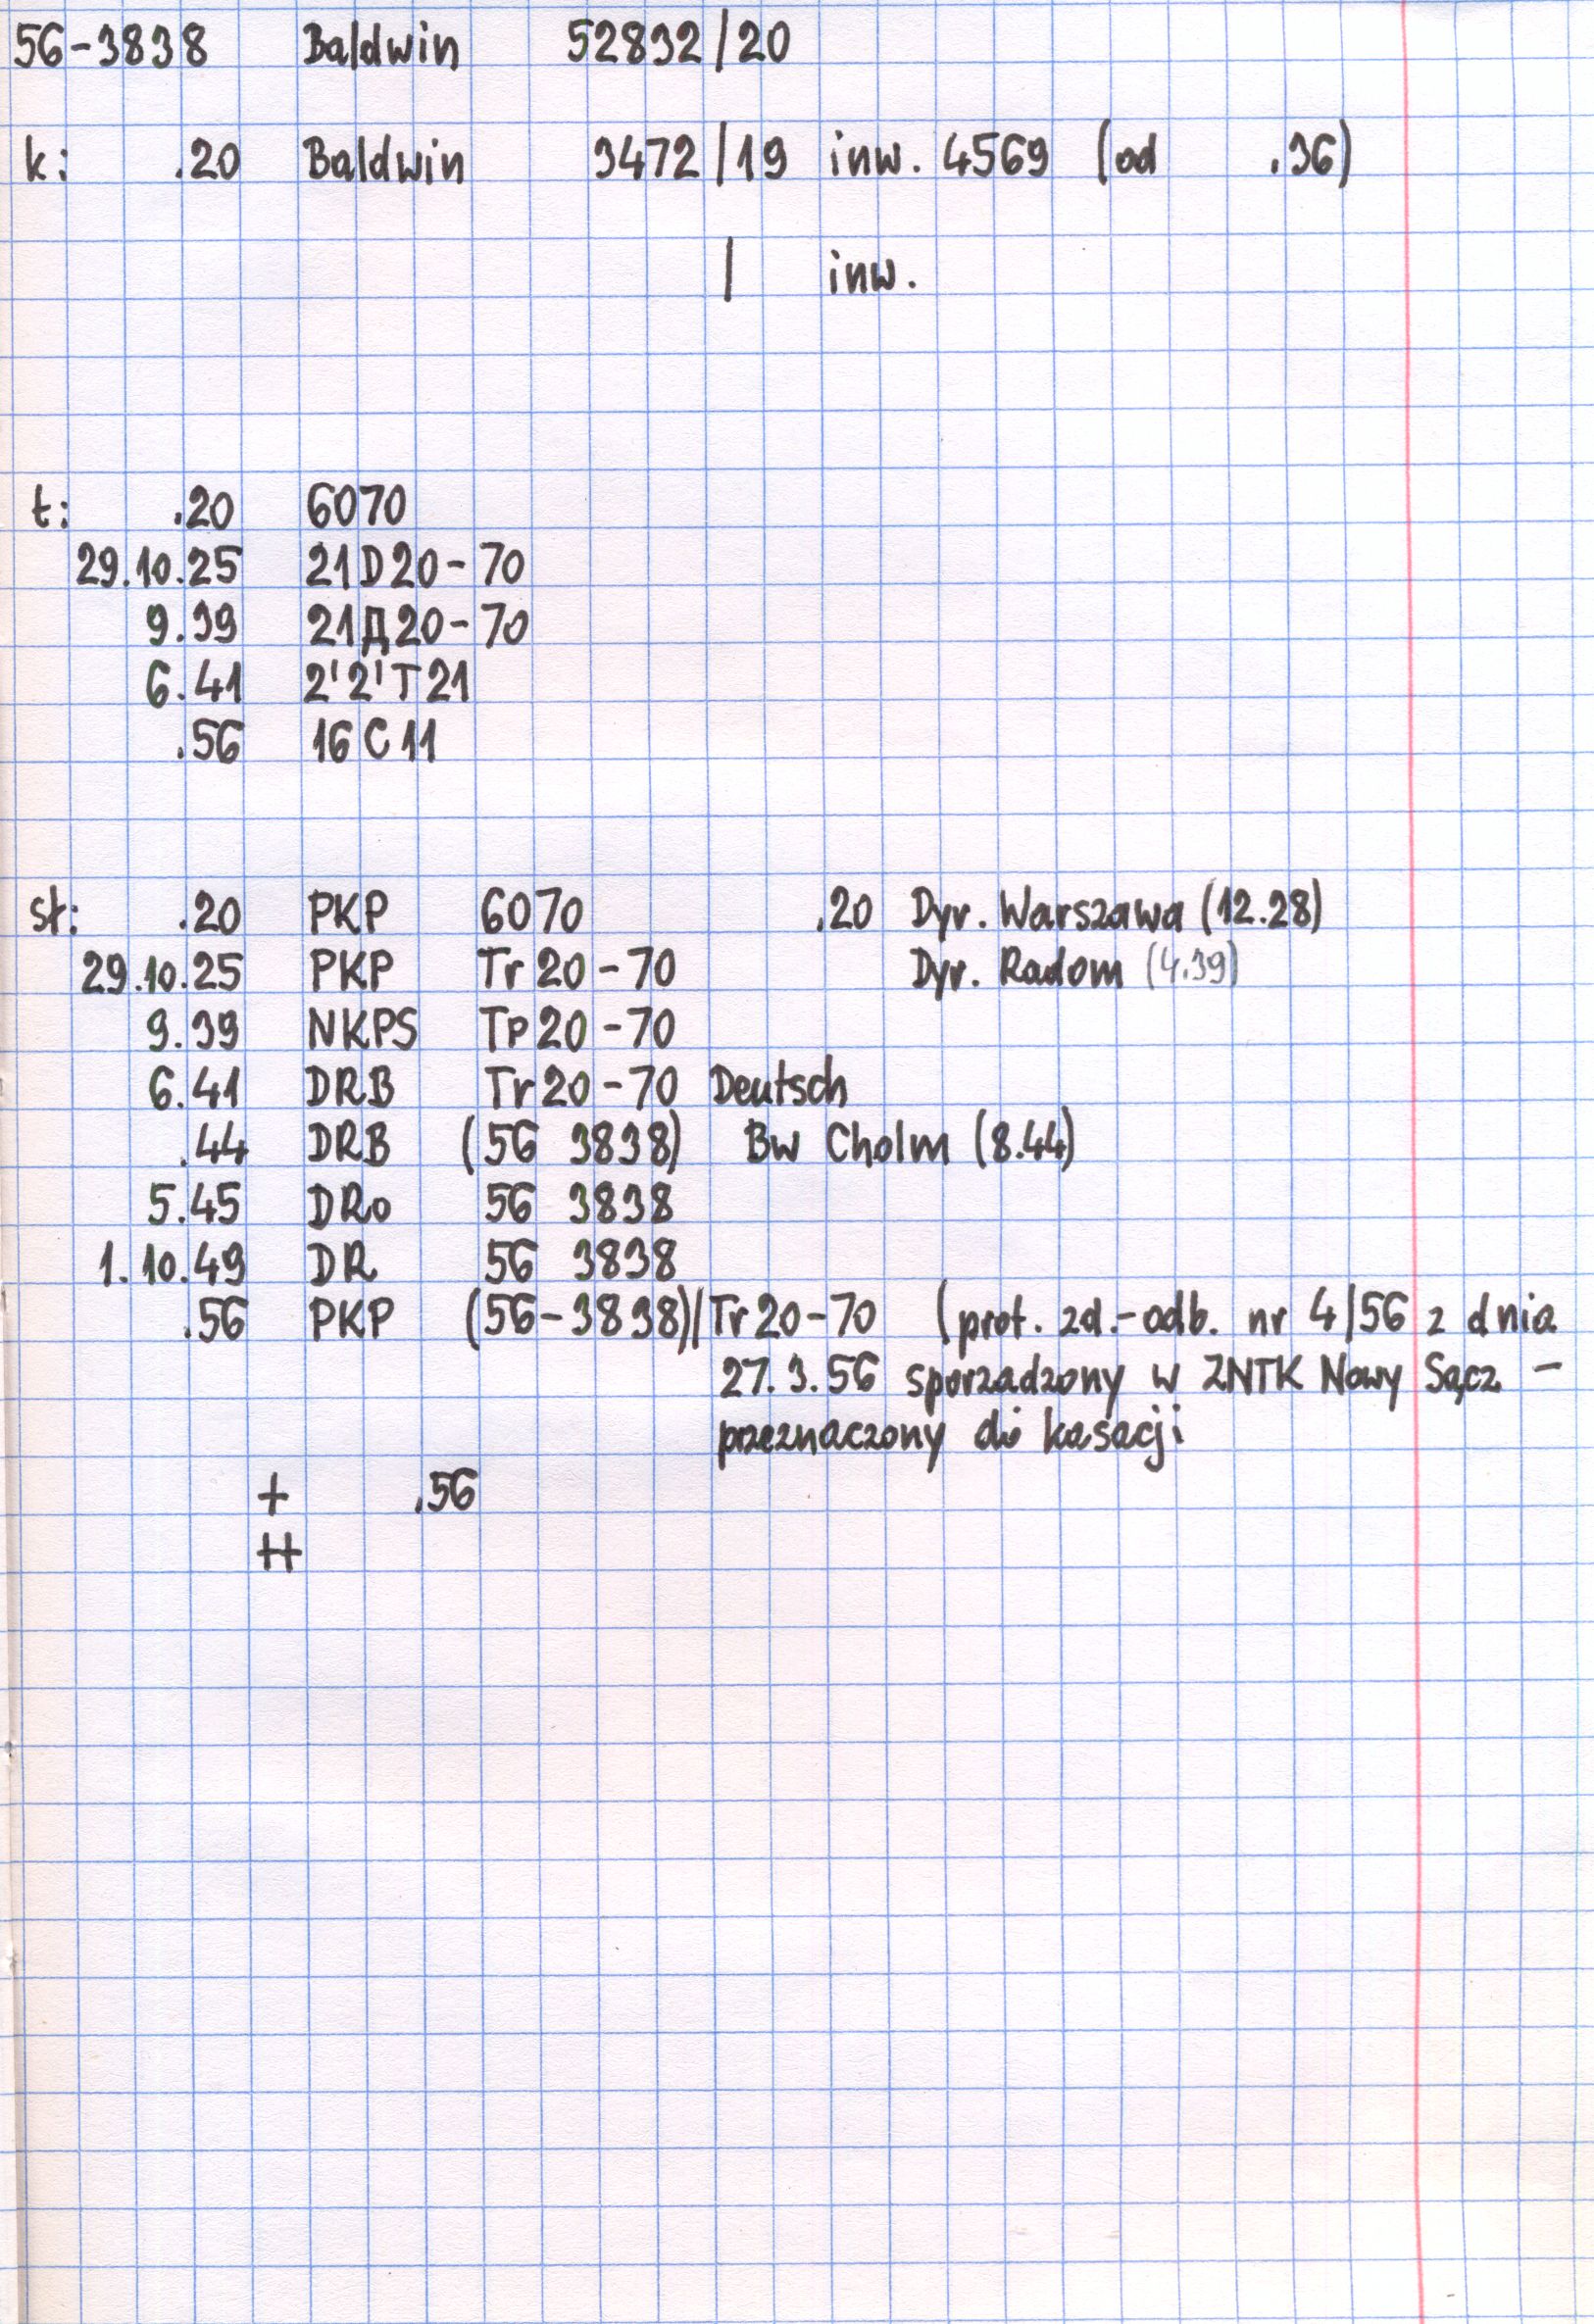 56-3838 Baldwin 52832/20
k: .20 Baldwin 3472/19 inw. 4569 (od .36)
/ inw.
t: .20 6070
29.10.25 21D20-70
9.39 21Д20-70
6.41 2'2'T21
.56 16C11
sł: .20 PKP 6070 .20 Dyr. Warszawa (12.28)
29.10.25 PKP Tr20-70 Dyr. Radom (4.39)
9.39 NKPS Tp20-70
6.41 DRB Tr20-70 Deutsch
.44 DRB (56 3838) Bw Cholm (8.44)
5.45 DRo 56 3838
1.10.49 DR 56 3838
.56 PKP (56-3838)/Tr20-70 (prot. zd.-odb. nr 4/56 z dnia
27.3.56 sporzadzony w ZNTK Nowy Sącz -
przeznaczony do kasacji
+ .56
++